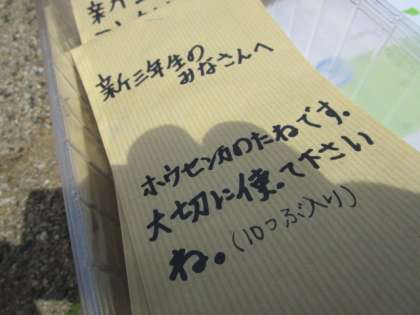 新三
新三年生の
みなさんへ
ホウセンカのたねです。
大切に使って下さい
ね。(10つぶ入り)